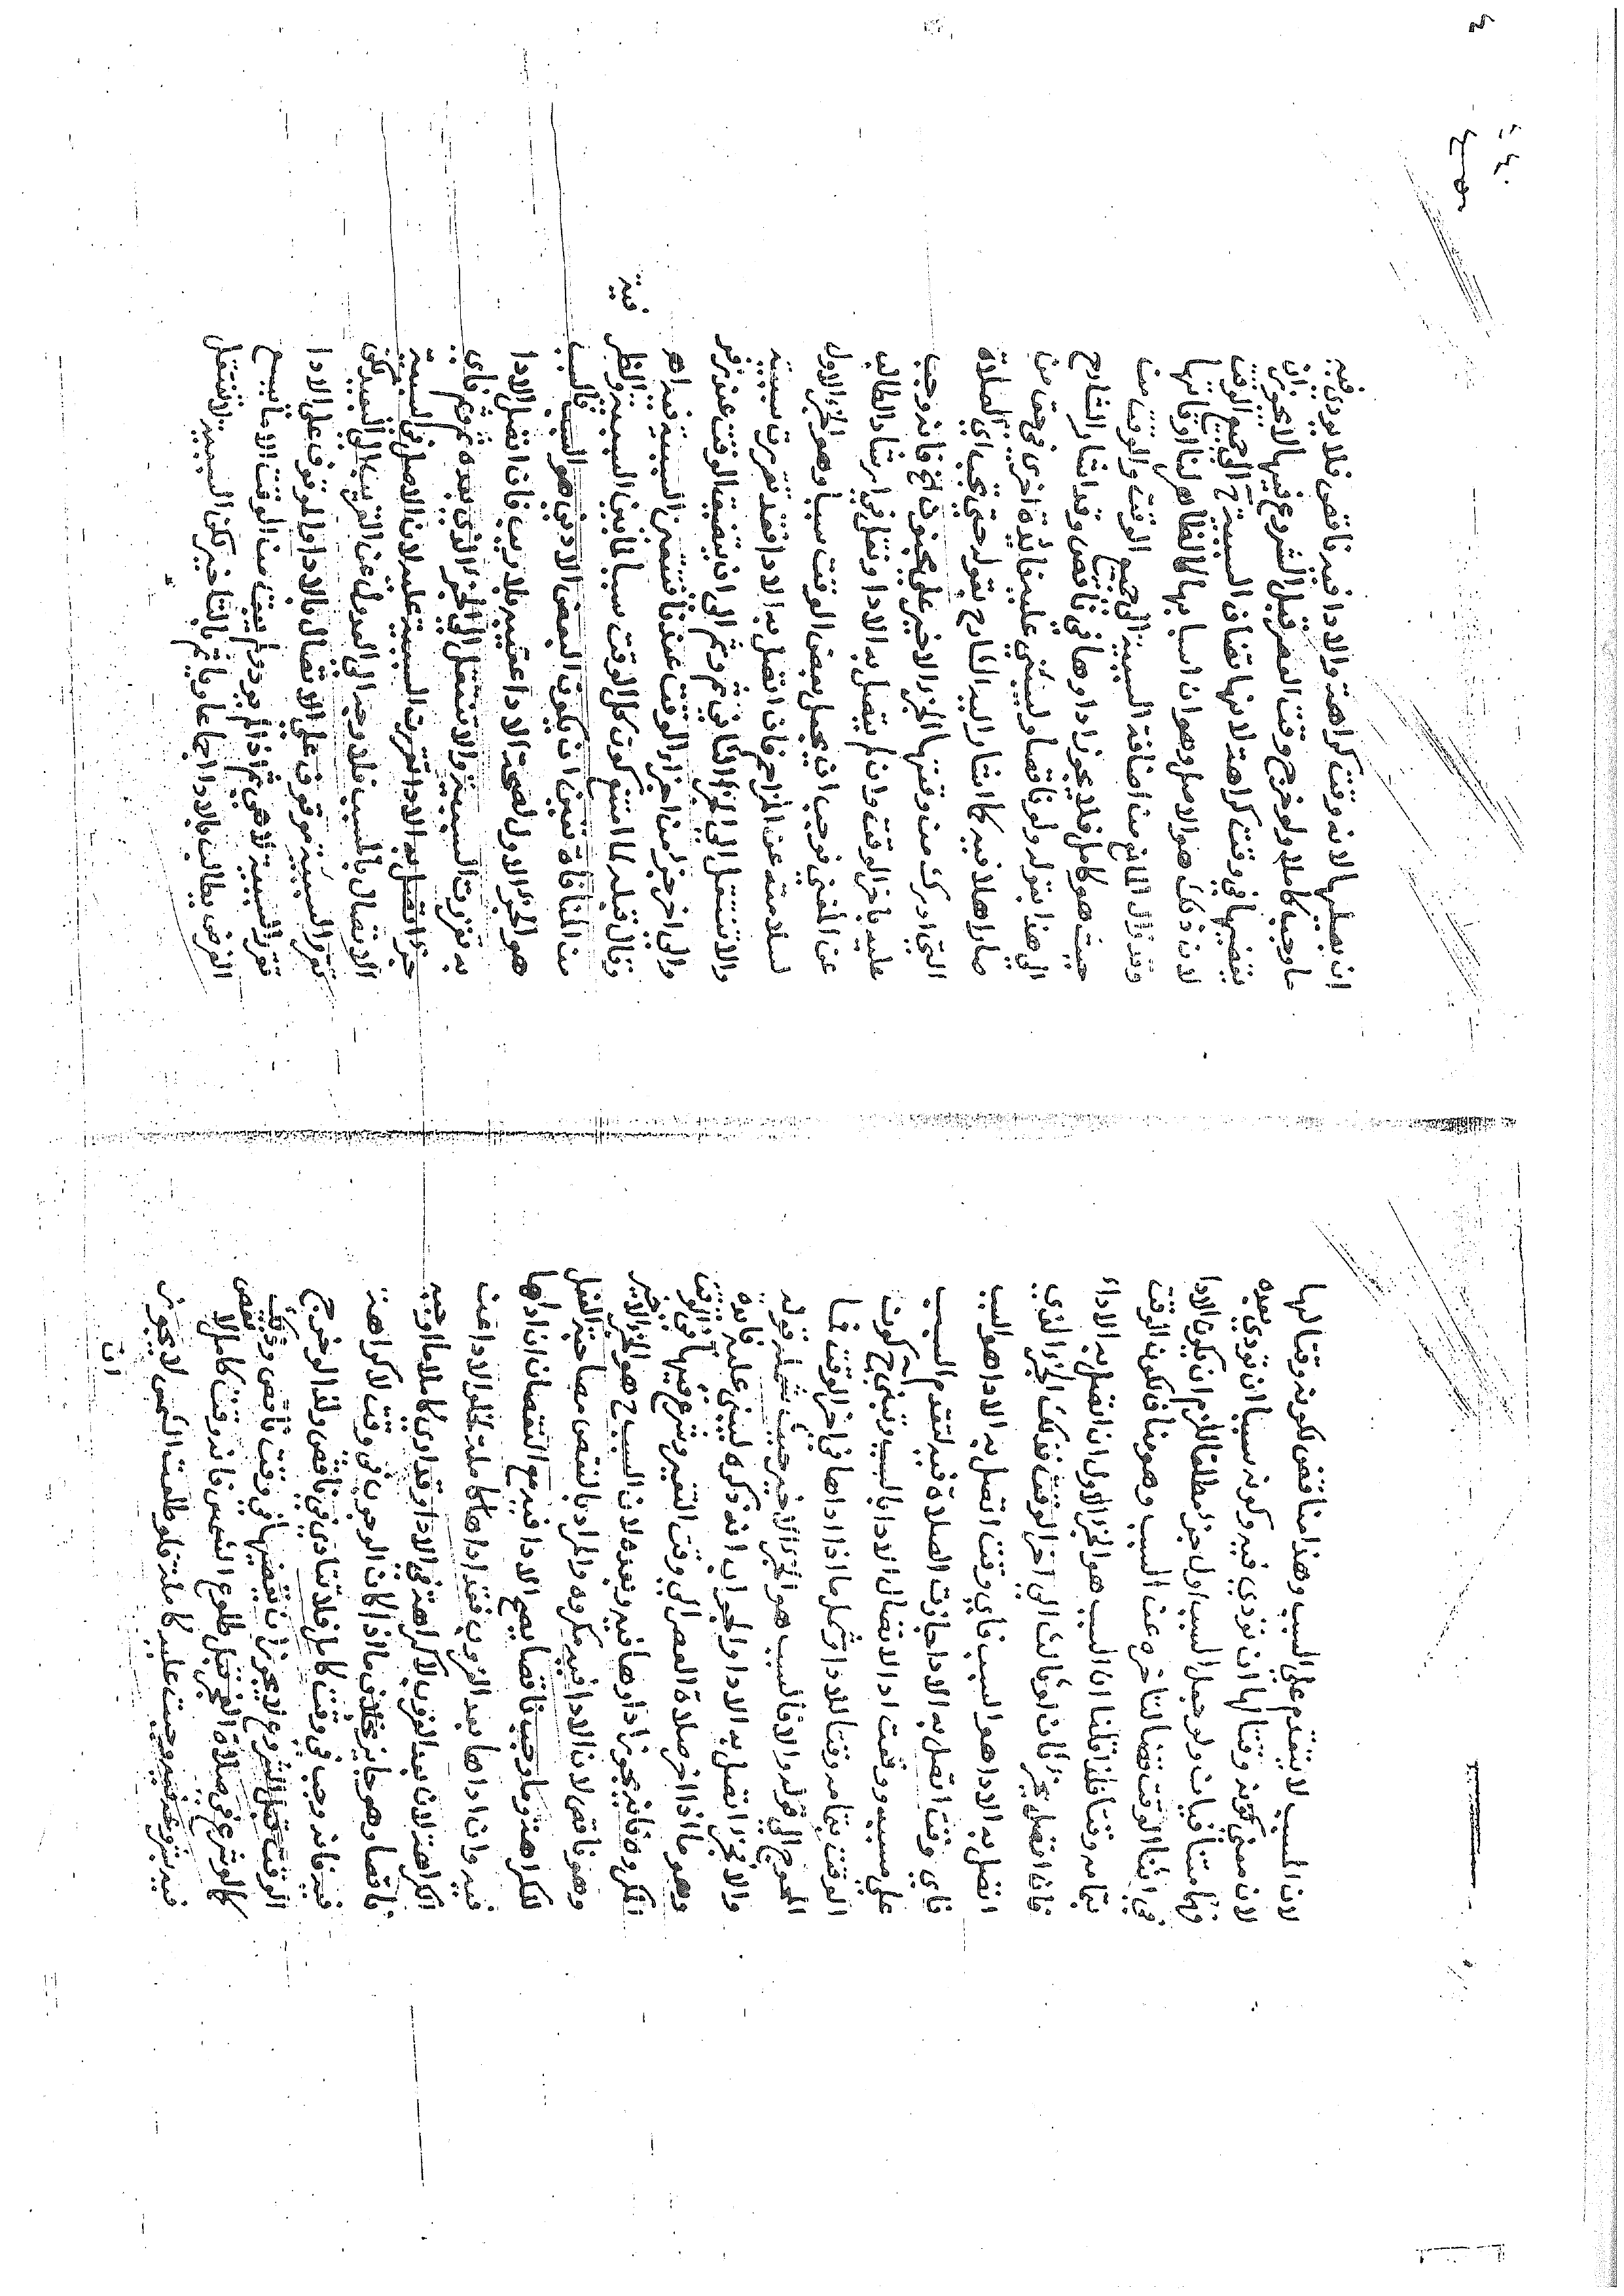 لان السبب لا يتقدم على السبب وهذا مناقض لكونه وقتا لها
لان معنى كونه وقتا لها ان تؤدي فيه وكونه سببا ان تؤدي بعده
وهما متنافيان ولو جعل السبب اول جزء مطلقا للزم ان يكون الادا
في اثنا الوقت قضا لتاخره عن السبب وهو مناف لكون الوقت
بتمامه وقتا فلذا قلنا ان السبب هو الجزء الاول ان اتصل به الاداء
فاذا اتصل بجزء ثان او ثالث الى اخر الوقت فذلك الجزء الذي
اتصل به الادا هو السبب فاي وقت اتصل به الادا هو السبب
فاي وقت اتصل به الادا جازت الصلاة فيه لتقدم السبب
على مسببه ووقعت ادا لاتصال الادا بالسبب وينتج ح كون
الوقت بتمامه وقتا للادا وشمل ما اذا اداها في اخر الوقت فما
المحوج الى قوله والا فالسبب هو الجزء الاخير حيث شمله قوله
والا فجزء اتصل به الادا والجواب انه ذكره ليبني عليه فايدة
وهو ما اذا اخر صلاة العصر الى وقت التغير وشرع فيها في الوقت
المكروه فانه يجوز اداوها فيه وبعده لان السبب ح هو الجزء الاخير
وهو ناقص لان الادا فيه مكروه والمراد بالنقص مصاحبة الفعل
للكراهة وما وجب ناقصا يصح الادا فيه مع النقصان ان اداها
فيه وان اداها بعد الغروب فقد اداها كاملة لخلو الادا عن
الكراهة لان بعد الغروب لا كراهة في الادا وقد ادي كاملا ما وجب
ناقصا وهو جايز بخلاف ما اذا كان الوجوب في وقت لا كراهة
فيه فانه وجب في وقت كامل فلا تتادى في ناقص ولذا لو خرج
الوقت قبل الشروع لا يجوز ان يقضيها في وقت ناقص وذلك
كالو شرع في صلاة الفجر قبل طلوع الشمس فانه وقت كامل لا نقص
فيه بشروعه فيه وجبت عليه كاملة فلو طلعت الشمس لا يجوز
ان
ان يصليها لانه وقت كراهة والادا فيه ناقص فلا يودى فيه
ما وجب كاملا ولو خرج وقت العصر قبل الشروع فيها لا يجوز ان
يقضيها في وقت كراهة لانها تضاف السببية ح الى جميع الوقت
لان ذلك هو الاصل وهو ان اسبابها كالظاهر لنا اوقاتها
وقد زال المانع من اضافة السببية الى جميع الوقت والوقت من
حيث هو كامل فلا يجوز اداوها في ناقص وقد اشار الشارح
الى هذا بقوله ولو ناقصا وليبني عليه فائدة اخرى في حق من
صار اهلا فيه كما اشار اليه الشارح بقوله حتى تجب اي الصلاة
التي ادرك من وقتها الجزء الاخير على مجنون الخ فانه وجب
عليه باخر الوقت وان لم يتصل به الادا ونقل في ارشاد الطالب
عن المغني فوجب ان يجعل بعض الوقت سببا وهو الجزء الاول
لسلامته عن المزاحم فان اتصل به الادا فقد تقررت سببيته
والا تنتقل الى الجزء الثاني ثم وثم الى ان يتضيق الوقت عند زفر
والى اخر جزء من اجزاء الوقت عندنا فتتعين السببية فيه اه
وقال قبله لما امتنع كون كل الوقت سببا لما بين السببية والظرفية
من المنافاة تعين ان يكون البعض الادنى هو السبب فالسبب
هو الجزء الاول لصحة الادا عقيبه بلا ريب فان اتصل الادا
به تقررت السببية والا تنتقل الى الجزء الذي بعده ثم وثم فاي
جزء اتصل به الادا تقررت السببية عليه لان الاصل في السببية
الاتصال بالمسبب فلا وجه الى العدول عن القريب الى البعيد لكن
تقرر السببية موقوف على الاتصال بالادا والموقوف على الادا
تقرر السببية لا هي ثم اذا لم يود ولم يبق من الوقت الا ما يسع
الفرض يطالب بالادا اجماعا وياثم بالتاخير لكن السببية لا تنتقل